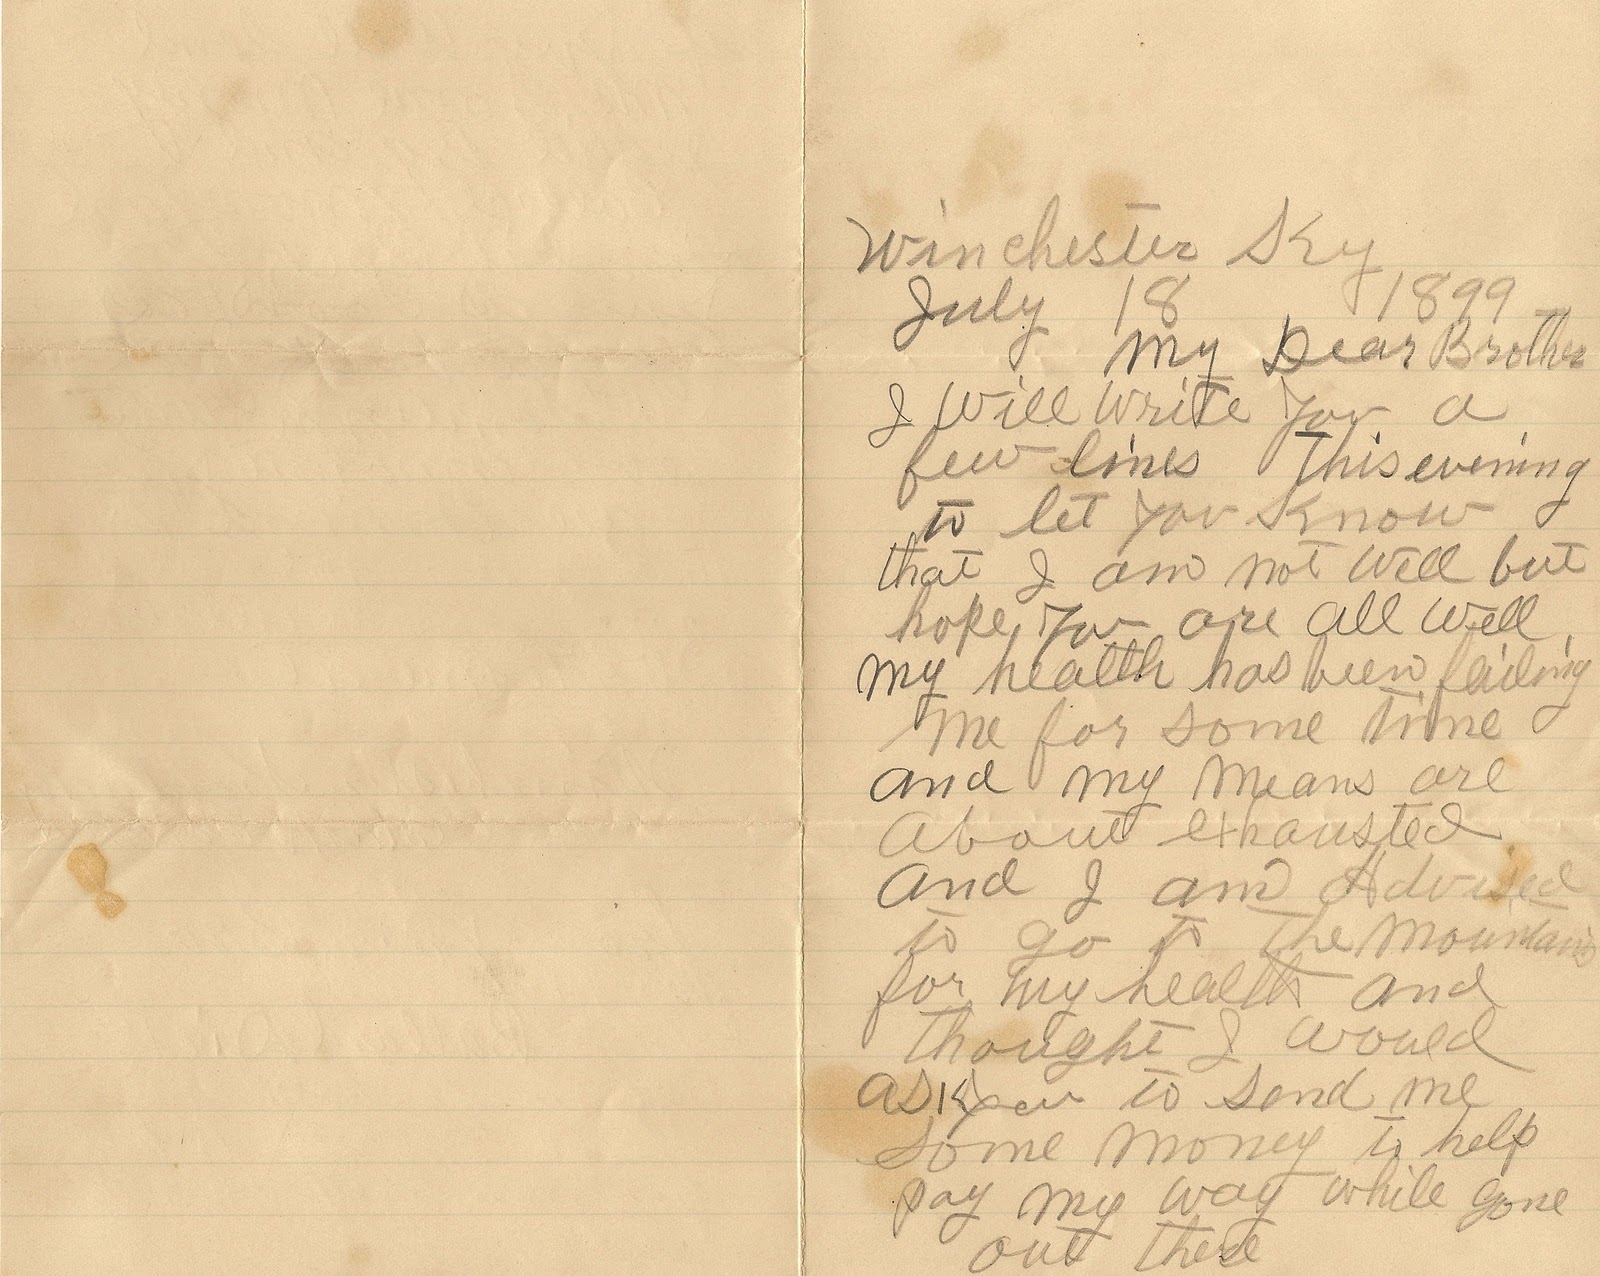 Winchester Ky
July 18 1899
My Dear Brother
I will write you a
few lines This evening
to let you Know
that I am not well but
hope you are all well
my health has been failing
me for some time
and my means are
About exhausted
And I am Advised
to go to The Mountains
for my health and
thought I would
ask you to send me
some money to help
pay my way while gone
out there